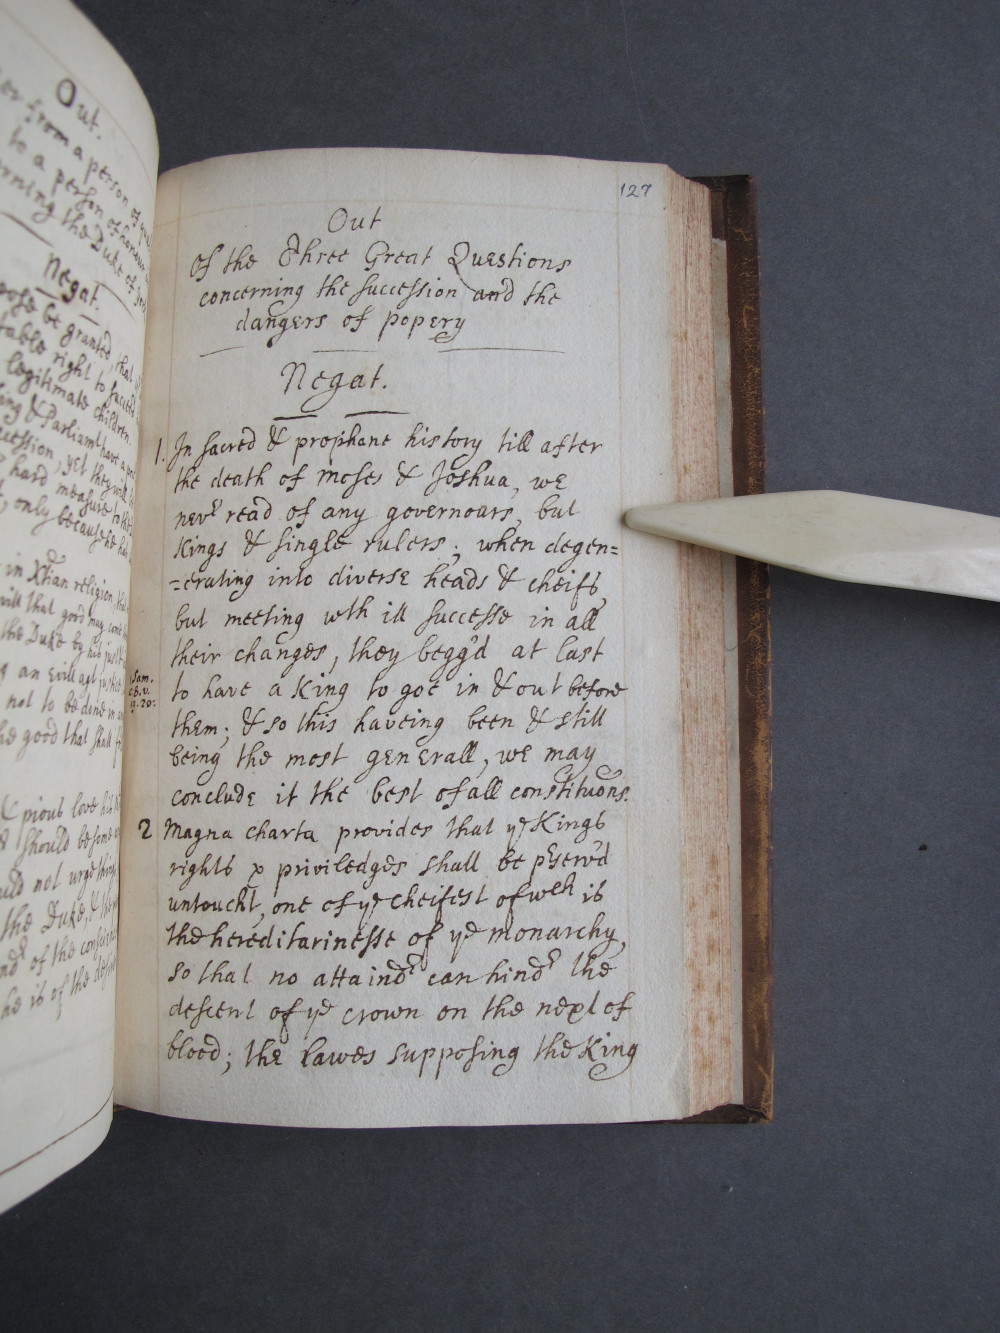 Out.
er from a person of
to a person of honour
erning the Duke of
Negat.
pose be granted, that
table right to succeed
legitimate children.
ing & Parliamt have a
cession, yet they will
hard measure to the
only because he
in Xtian religion, that
will that good may come
the Duke by his just
g an evill act
not to be done in
he good that shall
& pious love his
should be some
uld not urge things
the Duke, &
of the
he is of the
127
Out
of the Three Great Questions
concerning the succession and the
dangers of popery
Negat.
1. In sacred & prophane history till after
the death of Moses & Joshua, we
nevr read of any governours, but
Kings & single rulers; when degen=
=erating into diverse heads & cheifs,
but meeting wth ill successe in all
their changes, they begg'd at last
1 Sam.
c8. v.
19. 20:
to have a King to goe in & out before
them; & so this haveing been & still
being the most generall, we may
conclude it the best of all constituõns.
2 Magna charta provides that ye Kings
rights & priviledges shall be prserv'd
untoucht, one of ye cheifest of wch is
the hereditarinesse of ye monarchy,
so that no attaindr can hindr the
descent of ye crown on the next of
blood; the lawes supposing the King